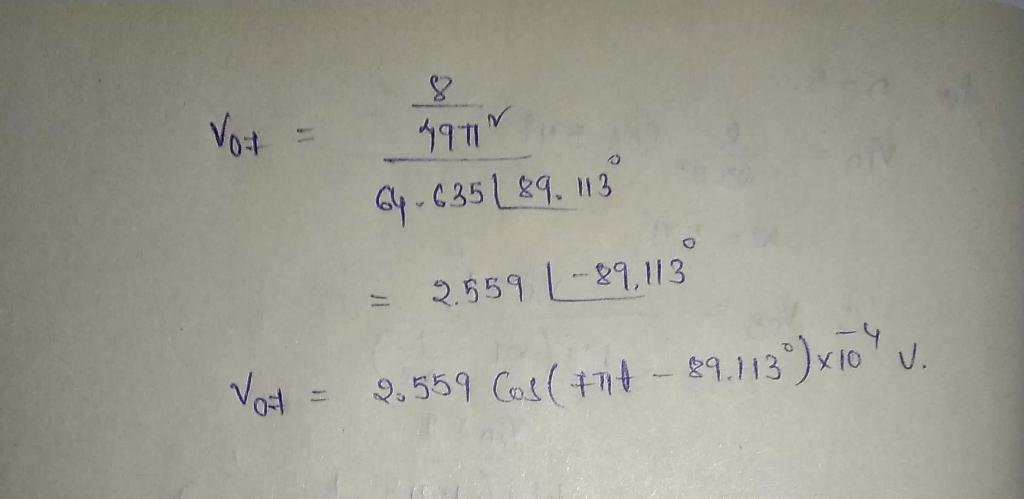 V₀₇ = (8 / 49π²) / 64.635∠89.113°
= 2.559 ∠-89.113°
V₀₇ = 2.559 Cos(7πt - 89.113°)×10⁻⁴ V.